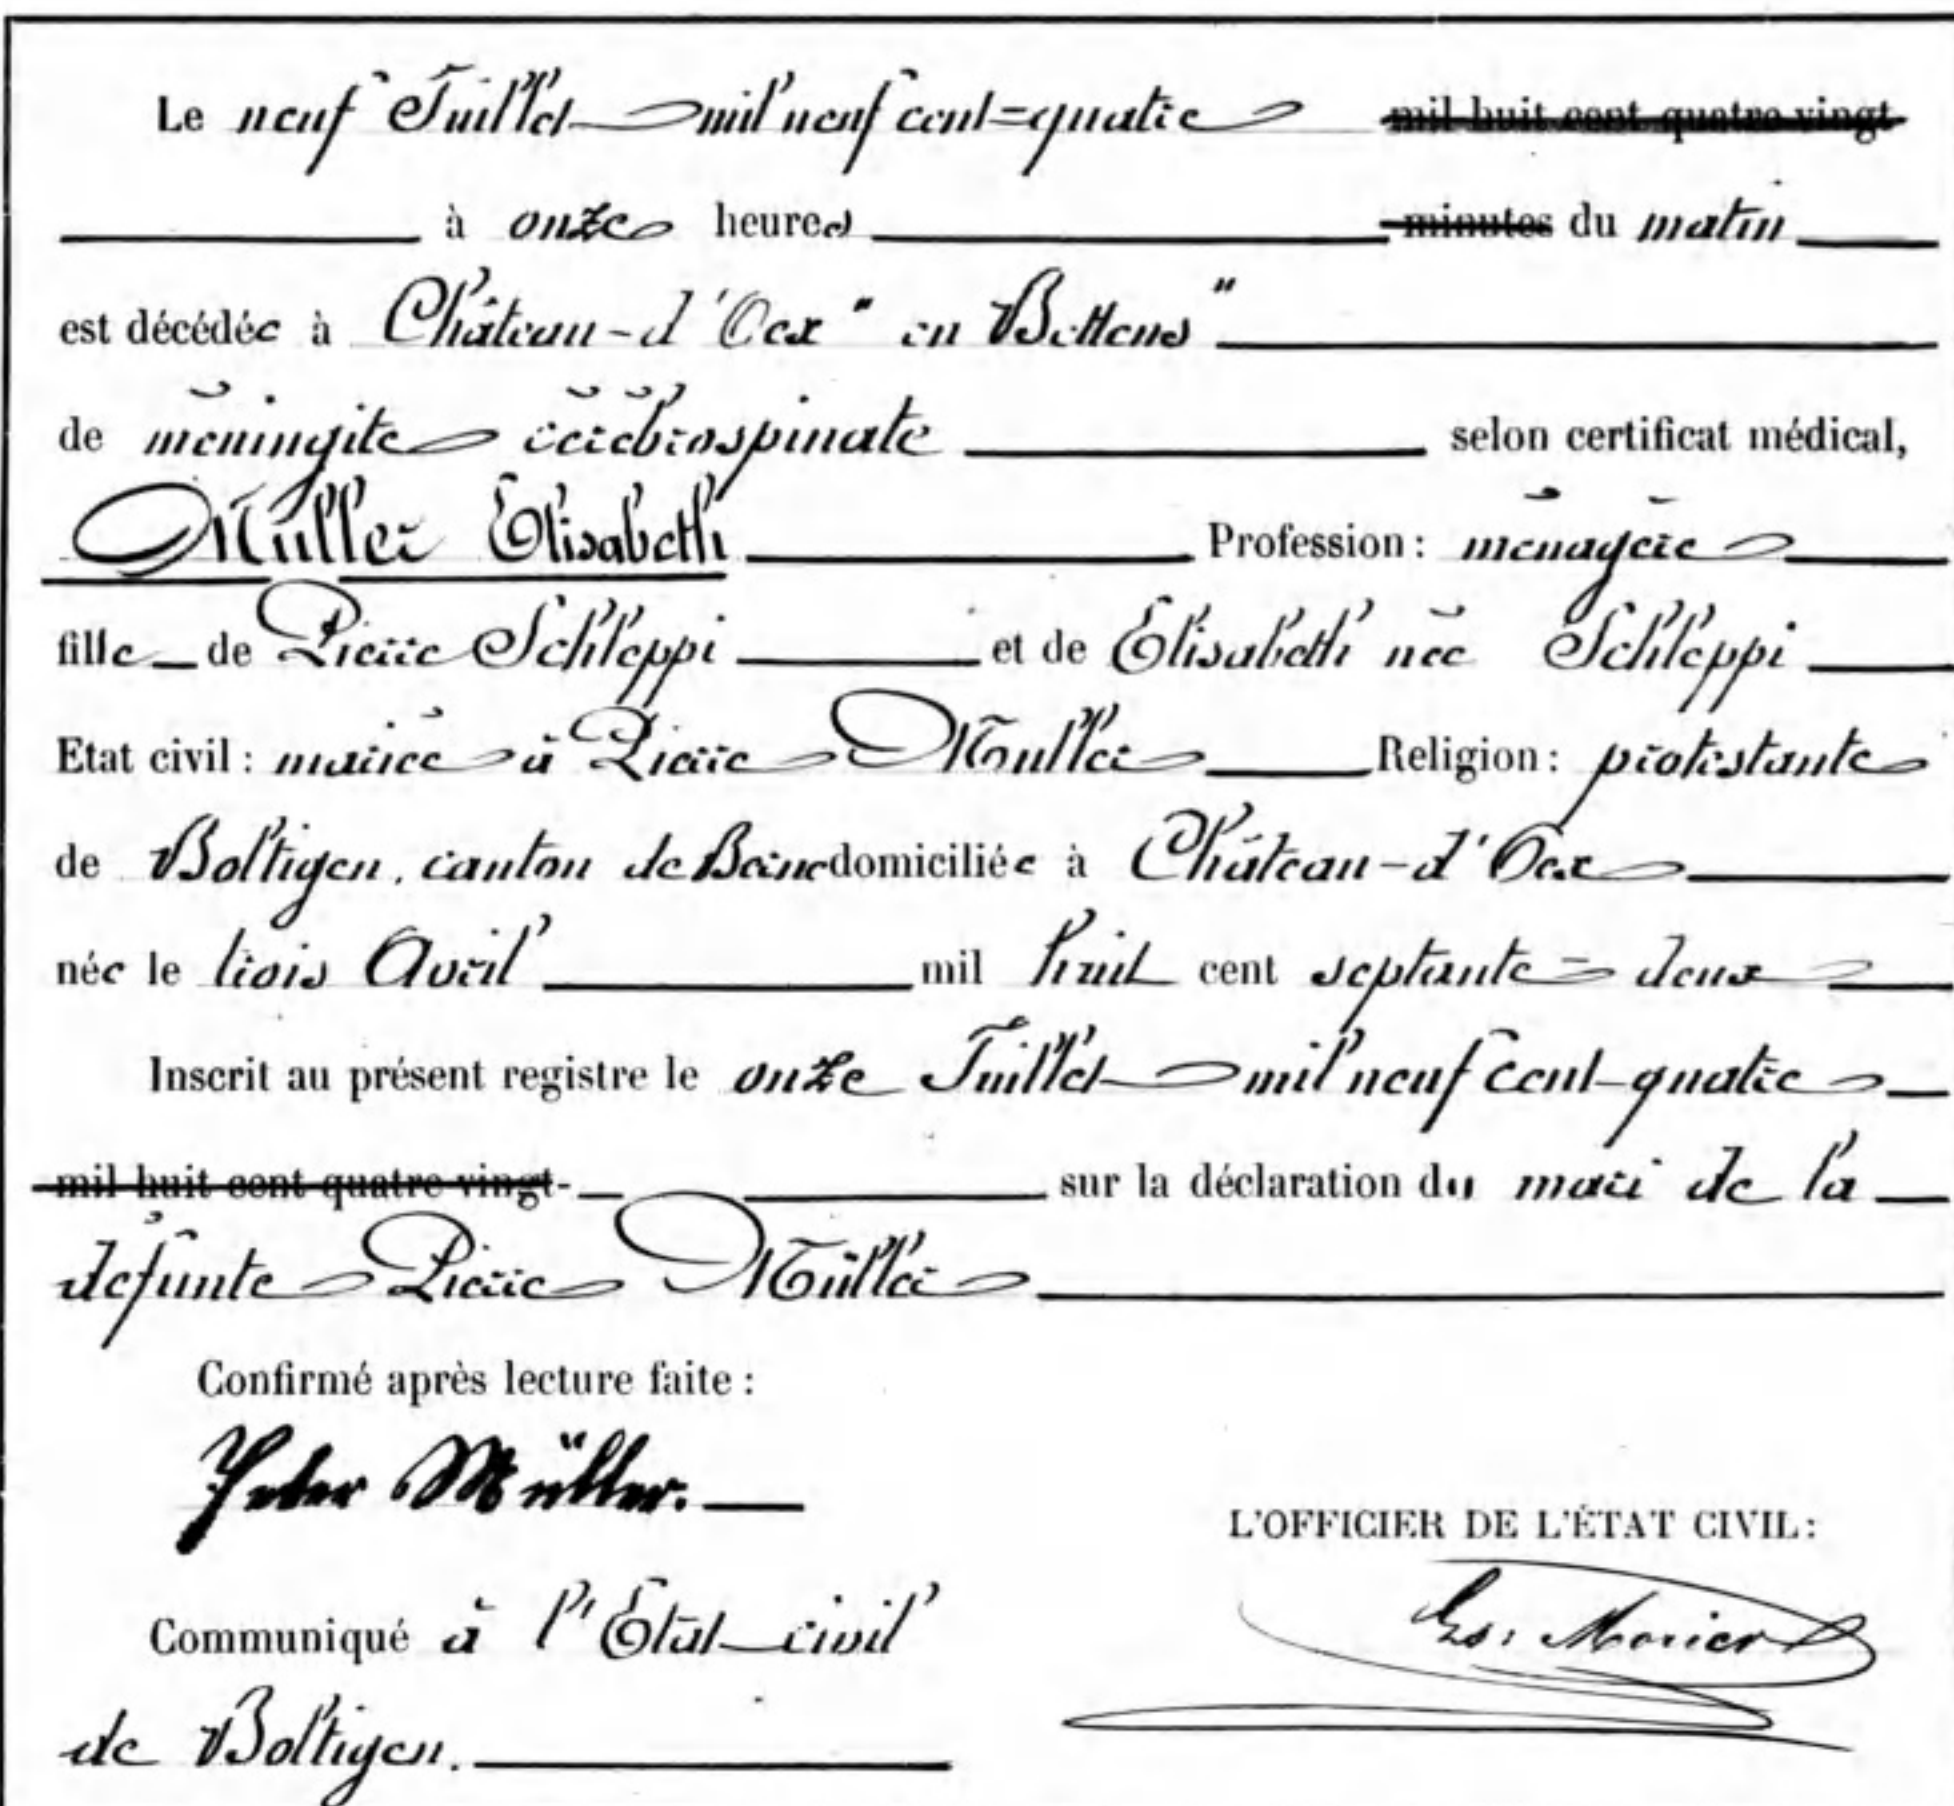 Le neuf Juillet mil neuf cent-quatre mil huit cent quatre vingt
à onze heures minutes du matin
est décédée à Château-d'Oex "en Bettens"
de méningite cérébrospinale selon certificat médical,
Müller Elisabeth Profession: ménagère
fille de Pierre Schleppi et de Elisabeth née Schleppi
Etat civil: mariée à Pierre Müller Religion: protestante
de Boltigen, canton de Berne domiciliée à Château-d'Oex
née le trois Avril mil huit cent septante-deux
Inscrit au présent registre le onze Juillet mil neuf cent-quatre
mil huit cent quatre vingt- sur la déclaration du mari de la
défunte Pierre Müller
Confirmé après lecture faite:
Peter Müller.
L'OFFICIER DE L'ÉTAT CIVIL:
Morier
Communiqué à l'Etat-civil
de Boltigen.